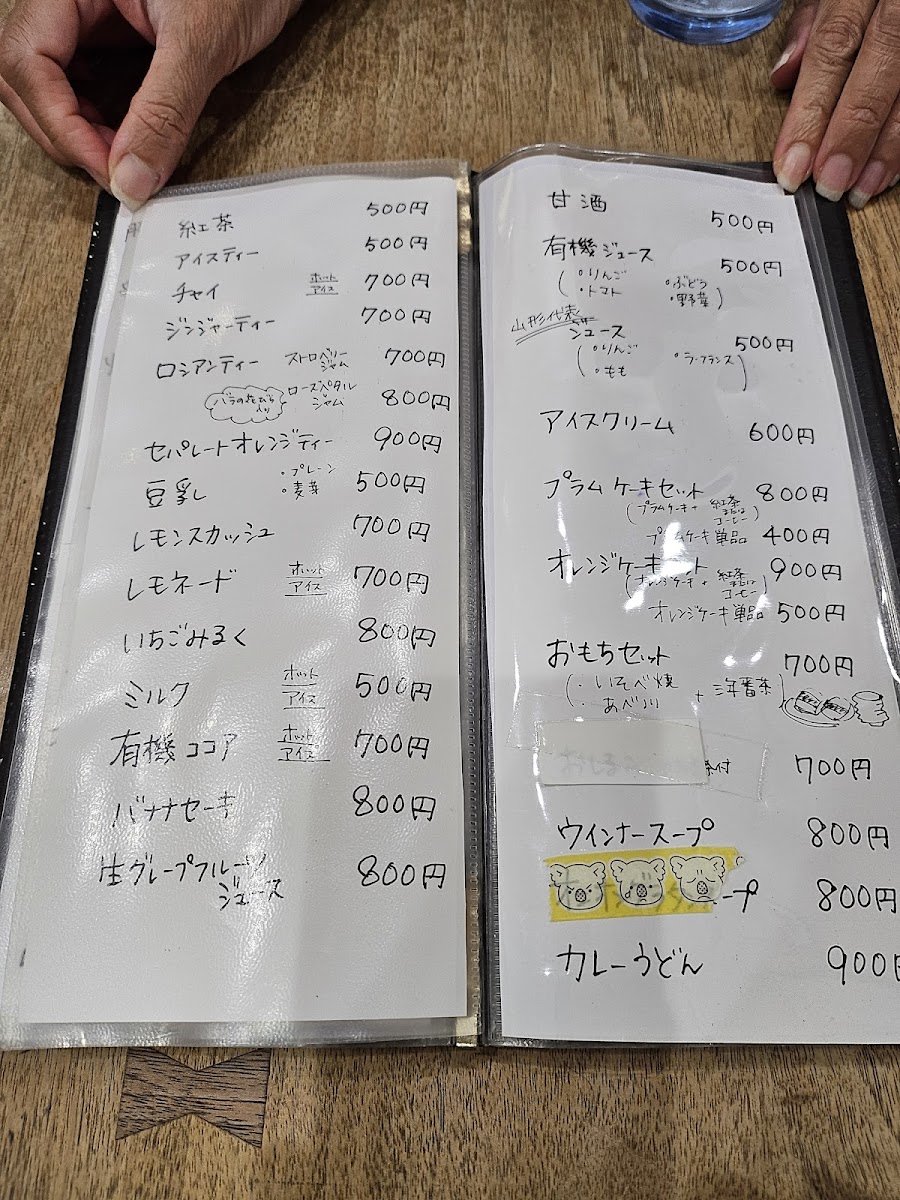 紅茶 500円
アイスティー 500円
チャイ ホット アイス 700円
ジンジャーティー 700円
ロシアンティー ストロベリージャム 700円
バラの花びら入り ローズペタルジャム 800円
セパレートオレンジティー 900円
豆乳 ・プレーン ・麦芽 500円
レモンスカッシュ 700円
レモネード ホット アイス 700円
いちごみるく 800円
ミルク ホット アイス 500円
有機ココア ホット アイス 700円
バナナセーキ 800円
生グレープフルーツ
ジュース 800円
甘酒 500円
有機ジュース 500円
(・りんご ・ぶどう
・トマト ・野菜)
山形代表
ジュース 500円
(・りんご ・ラ・フランス
・もも)
アイスクリーム 600円
プラムケーキセット 800円
(プラムケーキ+紅茶またはコーヒー)
プラムケーキ単品 400円
オレンジケーキセット 900円
(オレンジケーキ+紅茶またはコーヒー)
オレンジケーキ単品 500円
おもちセット 700円
(・いそべ焼 + 三年番茶)
・あべ川
茶付 700円
ウインナースープ 800円
ープ 800円
カレーうどん 900円